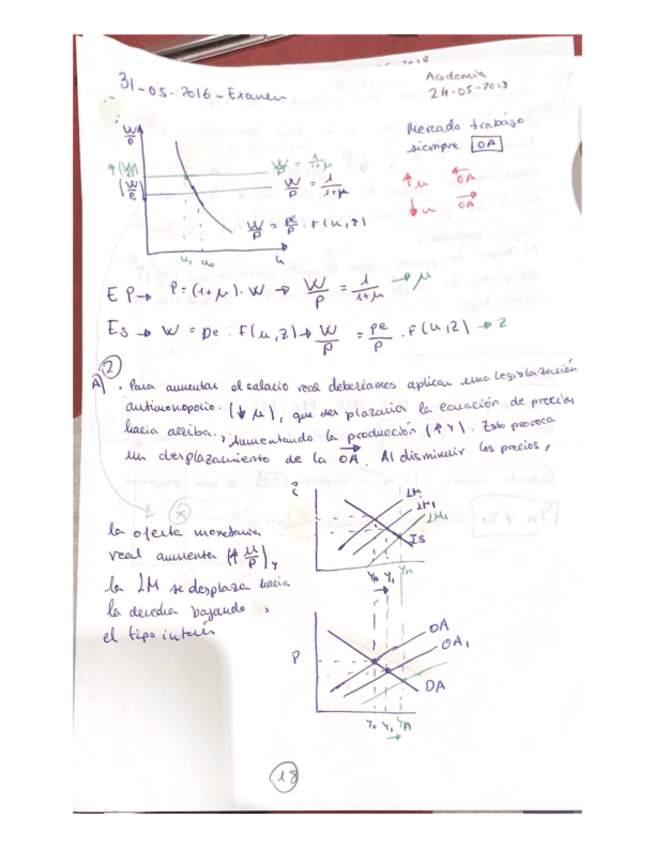 31-05-2016-Examen
Academia
24-05-2018
Mercado trabajo
siempre OA
↑μ OA
↓μ OA
W/P
↑(W/P)
(W/P)
W/P = 1/1+μ
W/P = 1/1+μ
W/P = pe/P · F(u,z)
u₁ u₀ u
EP→ P=(1+μ)·W → W/P = 1/1+μ → μ
ES → W = pe · F(u,z) → W/P = pe/P · F(u,z) → z
2
A) · Para aumentar el salario real deberíamos aplicar una legislación
antimonopolio. (↓μ), que desplazaría la ecuación de precios
hacia arriba, aumentando la producción (↑Y). Esto provoca
un desplazamiento de la OA. Al disminuir los precios,
la oferta monetaria
real aumenta (↑ M/P), y
la LM se desplaza hacia
la derecha bajando,
el tipo interés
i
LM
LM₁
LM₁
IS
Y₀ Y₁ Yn
P
OA
OA₁
DA
Y₀ Y₁ Yn
18